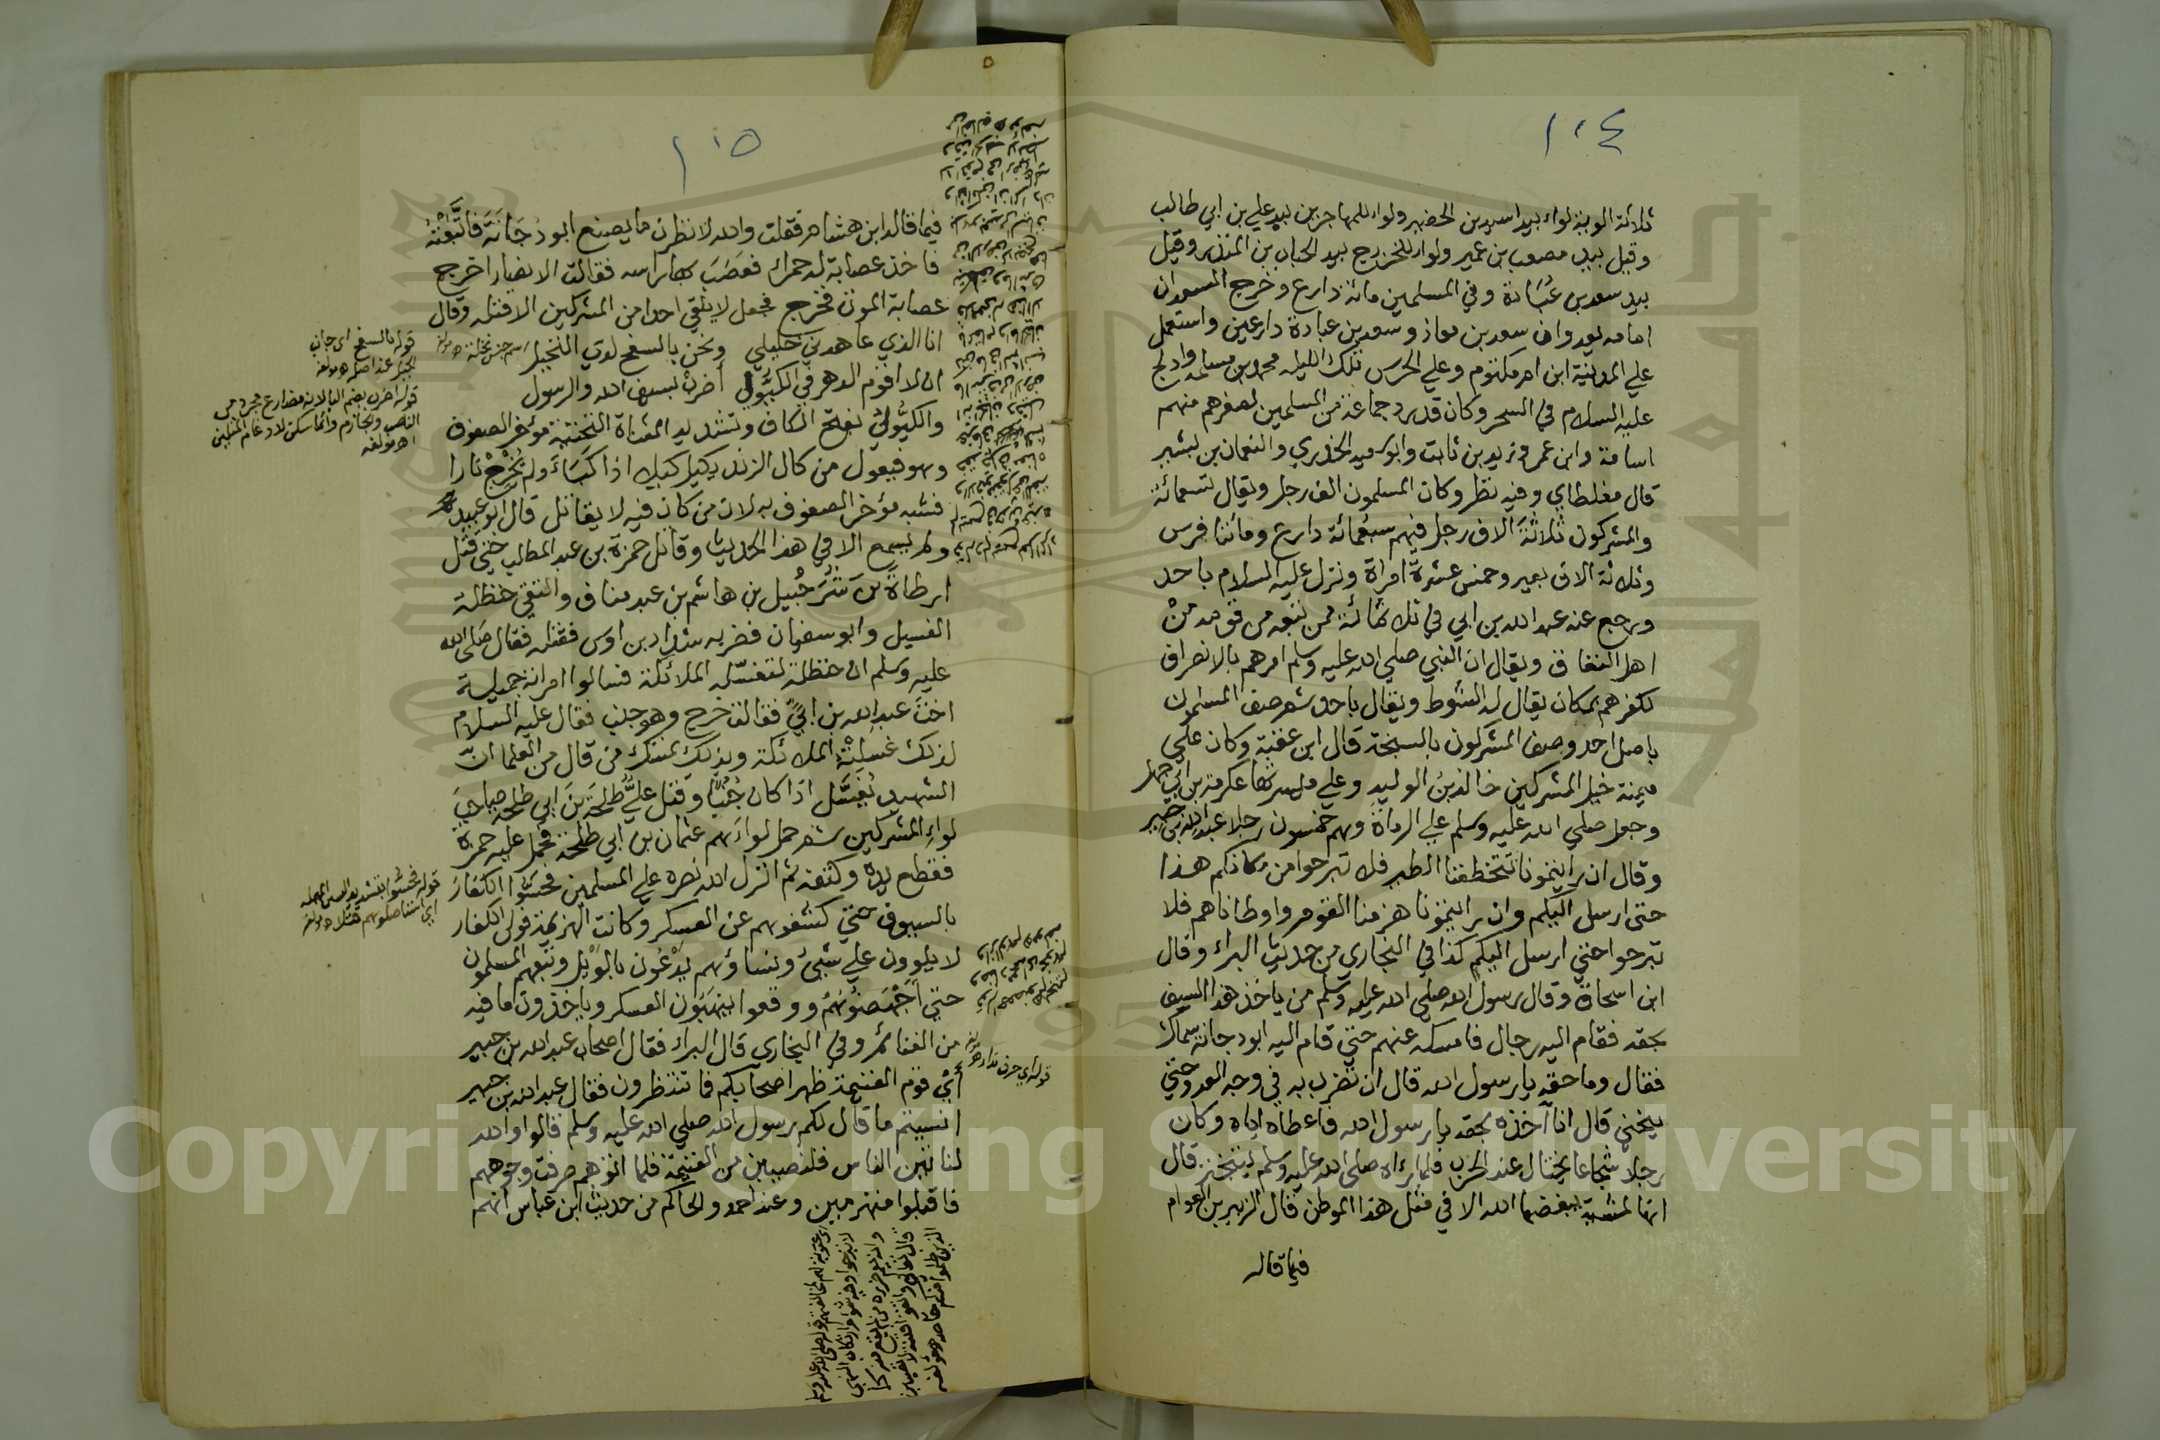 ١٠٤
ثلاثة الوية لواء بيد اسيد بن الحضير ولواء للمهاجرين بيد علي بن ابي طالب
وقيل بيد مصعب بن عمير ولواء للخزرج بيد الحباب بن المنذر وقيل
بيد سعد بن عُبَادة وفي المسلمين مائة دارع وخرج السعدان
امامه يعدوان سعد بن معاذ وسعد بن عبادة دارعين واستعمل
علي المدينة ابن ام مكتوم وعلي الحرس تلك الليله محمد بن مسلمه وادلج
عليه السلام في السحر وكان قد رد جماعة من المسلمين لصغرهم منهم
اسامة وابن عمر وزيد بن ثابت وابو سعيد الخدري والنعمان بن بشير
قال مغلطاي وفيه نظر وكان المسلمون الف رجل ويقال تسعمائة
والمشركون ثلاثَةَ الاف رجل فيهم سبعمائة دارع ومائتا فرس
وثلاثة الاف بعير وخمس عشرة امراة ونزل عليه السلام باحد
ورجع عنه عبد الله بن ابي في ثلاثمائة ممن تبعه من قومه منْ
اهل النفاق ويقال ان النبي صلي الله عليه وسلم امرهم بالانصراف
لكفرهم بمكان يقال له الشوط ويقال باحد ثم صف المسلمون
باصل احد وصف المشركون بالسبخة قال ابن عقبة وكان علي
ميمنة خيل المشركين خالد بن الوليد وعلي ميسرتها عكرمة بن ابي جهل
وجعل صلي الله عليه وسلم علي الرماة وهم خمسون رجلا عبد الله بن جبير
وقال ان رايتمونا تتخطفنا الطير فلا تبرحوا من مكانكم هذا
حتى ارسل اليكم وان رايتمونا هزمنا القوم واوطاناهم فلا
تبرحوا حتي ارسل اليكم كذا في البخاري من حديث البراء وقال
ابن اسحاق وقال رسول الله صلى الله عليه وسلم من ياخذ هذا السيف
بحقه فقام اليه رجال فامسكه عنهم حتي قام اليه ابو دجانه سماك
فقال وما حقه يا رسول الله قال ان تضرب به في وجه العدو حتي
ينحني قال انا آخذه بحقه يا رسول الله فاعطاه اياه وكان
رجلا شجاعا يختال عند الحرب فلما راه صلى الله عليه وسلم يتبختر قال
انها لمشية يبغضها الله الا في مثل هذا الموطن قال الزبير بن العوام
فيما قاله
١٠٥
فيما قاله ابن هشام فقلت والله لانظرن ما يصنع ابو دُجَانَةَ فاتَّبَعْتُهُ
فاخذ عصابة له حمراء فعَصَبَ بها راسه فقالت الانصار اخرج
عصابة الموت فخرج فجعل لا يلقي احدا من المشركين الا قتله وقال
انا الذي عاهدني خليلي ونحن بالسفح لدي النخيل
ان لا اقوم الدهر في الكَيُّولِ أضربْ بسيف الله والرسول
والكَيُّولِ بفتح الكاف وتشديد المثناة التحتية مؤخر الصفوف
وهو فيعول من كال الزند يكيل كيلا اذا كَبَاءَ ولم يُخْرِجْ نارا
فشبه مؤخر الصفوف به لان من كان فيه لا يقاتل قال ابو عبيدة
ولم يسمع الا في هذا الحديث وقاتل حمزة بن عبد المطلب حتي قتل
ارطاةَ بنَ شُرَحْبيل بن هاشم بن عبد مناف والتقي حنظلة
الغسيل وابو سفيان فضربه شداد بن اوس فقتله فقال صَلى الله
عليه وسلم ان حنظلة لتغسّله الملائكة فسالوا امراته جميلة
اختَ عبد الله بن ابيٍّ فقالت خرج وهو جنب فقال عليه السلام
لذلك غسلتْهُ الملائكة وبذلك تمسّك من قال من العلما ان
الشهيد يُغَسَّل اذا كان جُنُبًا وقتل عليٌّ طلحَةَ بنَ ابي طلحة صاحبَ
لواءِ المشركين ثم حمل لواءَهم عثمان بن ابي طلحة فحمل عليه حمزة
فقطع يده وكتفه ثم انزل الله نصره علي المسلمين فحسُّوا الكفارَ
بالسيوف حتي كشفوهم عن العسكر وكانت الهزيمة فولى الكفار
لا يلوون علي شيئ ونساؤهم يدْعُون بالوَيْل وتبعهم المسلمون
حتي أجْهَضُوْهُمْ ووقعوا ينهبُون العسكر وياخذون ما فيه
من الغنائم وفي البخاري قال البراء فقال اصحاب عبد الله بن جبير
أيْ قوم الغنيمة ظهر اصحابكم فما تنتظرون فقال عبد الله بن جبير
انسيتم ما قال لكم رسول الله صلي الله عليه وسلم قالوا والله
لناتين الناس فلنصيبن من الغنيمة فلما اتوهم صرفت وجوههم
فاقبلوا منهزمين وعند احمد والحاكم من حديث ابن عباس انهم
قوله بالسفح اي جانب
الجبل عند اصله اهـ مؤلفه
قوله اضرب بضم البا لانه مضارع مجرد من
الناصب والجازم وانما سكن لادغام المثلين
اهـ مؤلفه
قوله فحسُّوا بتشديد السين المهملة
اي استاصلوهم قتلا اهـ مؤلفه
Copyright © King Saud University
جامعة الملك سعود
1957